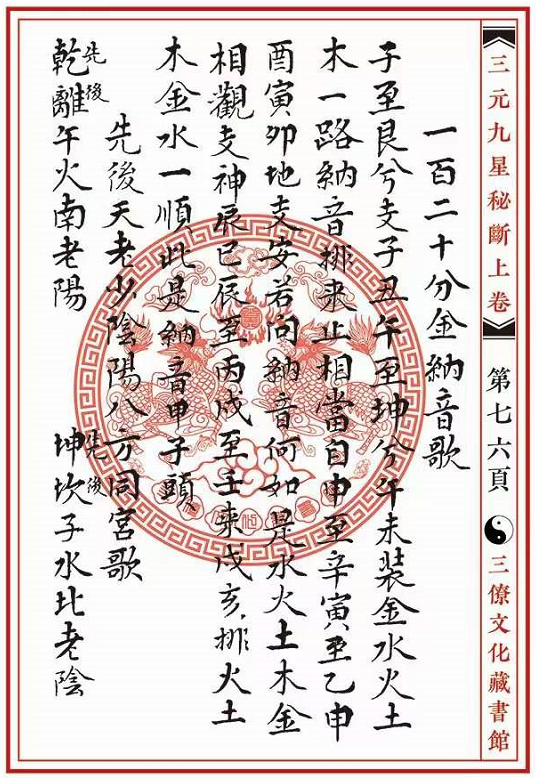 《三元九星秘斷上卷》
第七六頁
三僚文化藏書館
一百二十分金納音歌
子至艮兮支子丑午至坤兮午未裝金水火土
木一路納音排來止相當自申至辛寅至乙申
酉寅卯地支安若問納音何如是水火土木金
相觀支神辰巳辰至丙戌至壬來戌亥排火土
木金水一順此是納音甲子頭
先後天老少陰陽八方同宮歌
乾先離後午火南老陽 坤先坎後子水北老陰